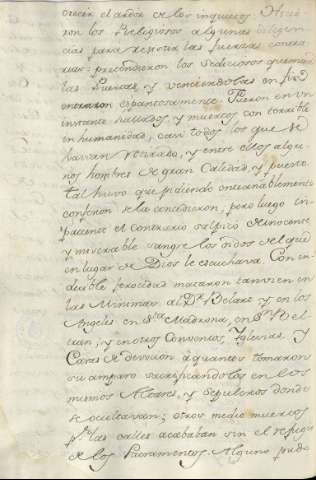 crecia el ardor de los inquietos. Hicie
ron los Religiosos algunas diligen
cias para resistir las fuerzas contra
rias: prendieron los sediciosos
las Puertas, y venciendolas en fin
entraron espantosamente. Fueron en un
instante hallados, y muertos con terrible
inhumanidad, casi todos los que se
havian retirado, y entre ellos algu
nos hombres de gran Calidad, y puesto
tal huvo que pidiendo entrañablemente
confesion se la concedieron; pero luego im
paciente el contrario salpicó de inocente
y miserable sangre los oidos del que
en lugar de Dios le escuchava. Con in
creible ferocidad mataron tambien en
las Minimas al Dr. y en los
Angeles en Sta. Madrona, en Sn.
y en otros Conventos, Iglesias, y
Casas de devocion á quantos tomaron
su amparo sacrificandolos en los
mismos Altares, y Sepulcros donde
se ocultavan; otros medio muertos
pr. las calles acababan sin el refugio
de los Sacramentos. Alguno pudo